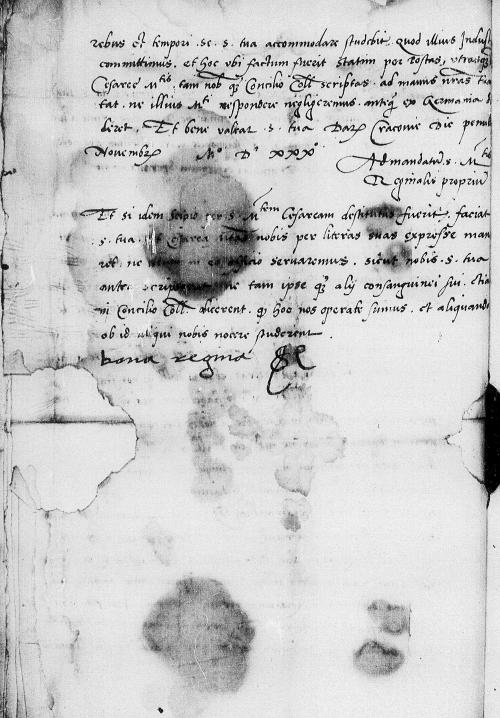 rebus et tempori se s. tua accommodare studebit quod illius Indust
committimus. et hoc vbi factum fuerit statim per Postas, vtrasqꝫ
Cesaree Mtis. tam nob. qꝫ Concilio Coll. scriptas. ad manus nras tra
tat. ne illius Mti respondere negligeremus. anteqꝫ ex Germania
deret. Et bene valeat s. tua Daꝫ Cracouie Die penult
Nouembrꝫ Mo Do xxxo
Ad mandatum s. Mtis
Reginalis proprium
Et si idem Scipio per s. Mtem Cesaream destitutus fuerit, faciat
s. tua nobis per literas suas expresse man
ret. ne seruaremus. sicut nobis s. tua
ante ne tam ipse qꝫ alij consanguinei sui. etia
in Concilio Coll. dicerent. qꝫ hoc nos operate simus. et aliquando
ob id aliqui nobis nocere studerent.
bona regina